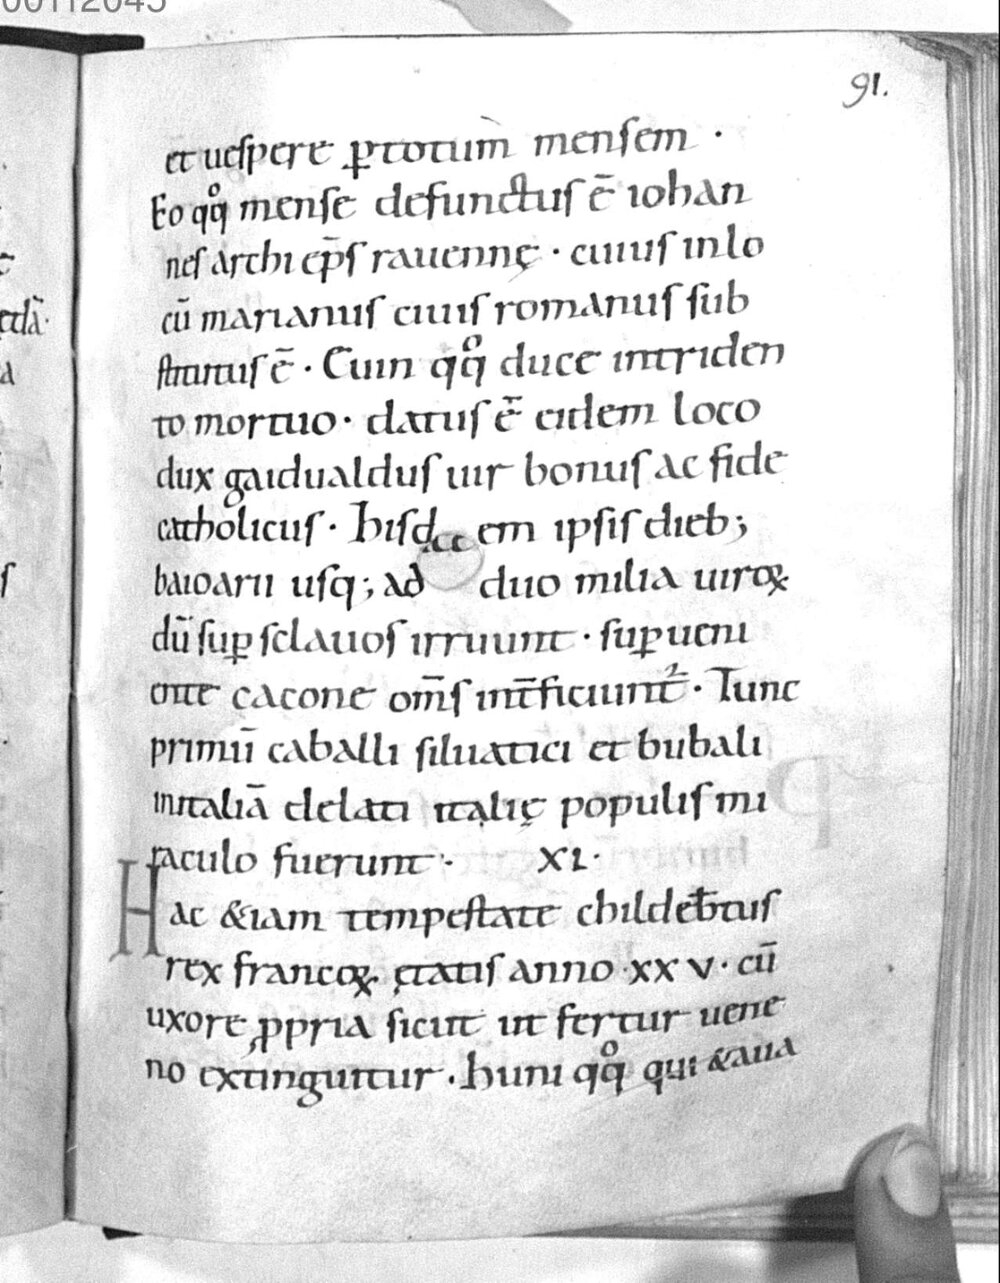 00112045
91.
et uespere ꝑtotum̅ mensem ·
Eo qͦꝗ mense defunctus ē iohan
nes archi ep̄s rauennę · cuius inlo
cū marianus ciuis romanus sub
stitutus ē · Cuin qͦꝗ duce intriden
to mortuo · datus ē eidem loco
dux gaidualdus uir bonus ac fide
catholicus · hisd em ipsis dieb;
baioarii usq; ad duo milia uiroꝝ
dū suꝑ sclauos irruunt · suꝑueni
ente cacone om̄s int̄ficiunt᷑ · Tunc
primū caballi siluatici et bubali
initaliā delati italię populis mi
raculo fuerunt · XI ·
Hac &iam tempestate childeb̄tus
rex francoꝝ · ętatis anno · xx v · cū
uxore ꝓpria sicut ut fertur uene
no extinguitur · huni qͦꝗ qui &aua